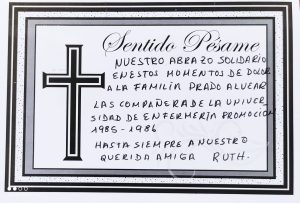 Sentido Pésame
NUESTRO ABRAZO SOLIDARIO
EN ESTOS MOMENTOS DE DOLOR
A LA FAMILIA PRADO ALVEAR
LAS COMPAÑERA DE LA UNIVER-
SIDAD DE ENFERMERÍA PROMOCION
1985-1986
HASTA SIEMPRE A NUESTRO
QUERIDA AMIGA RUTH.